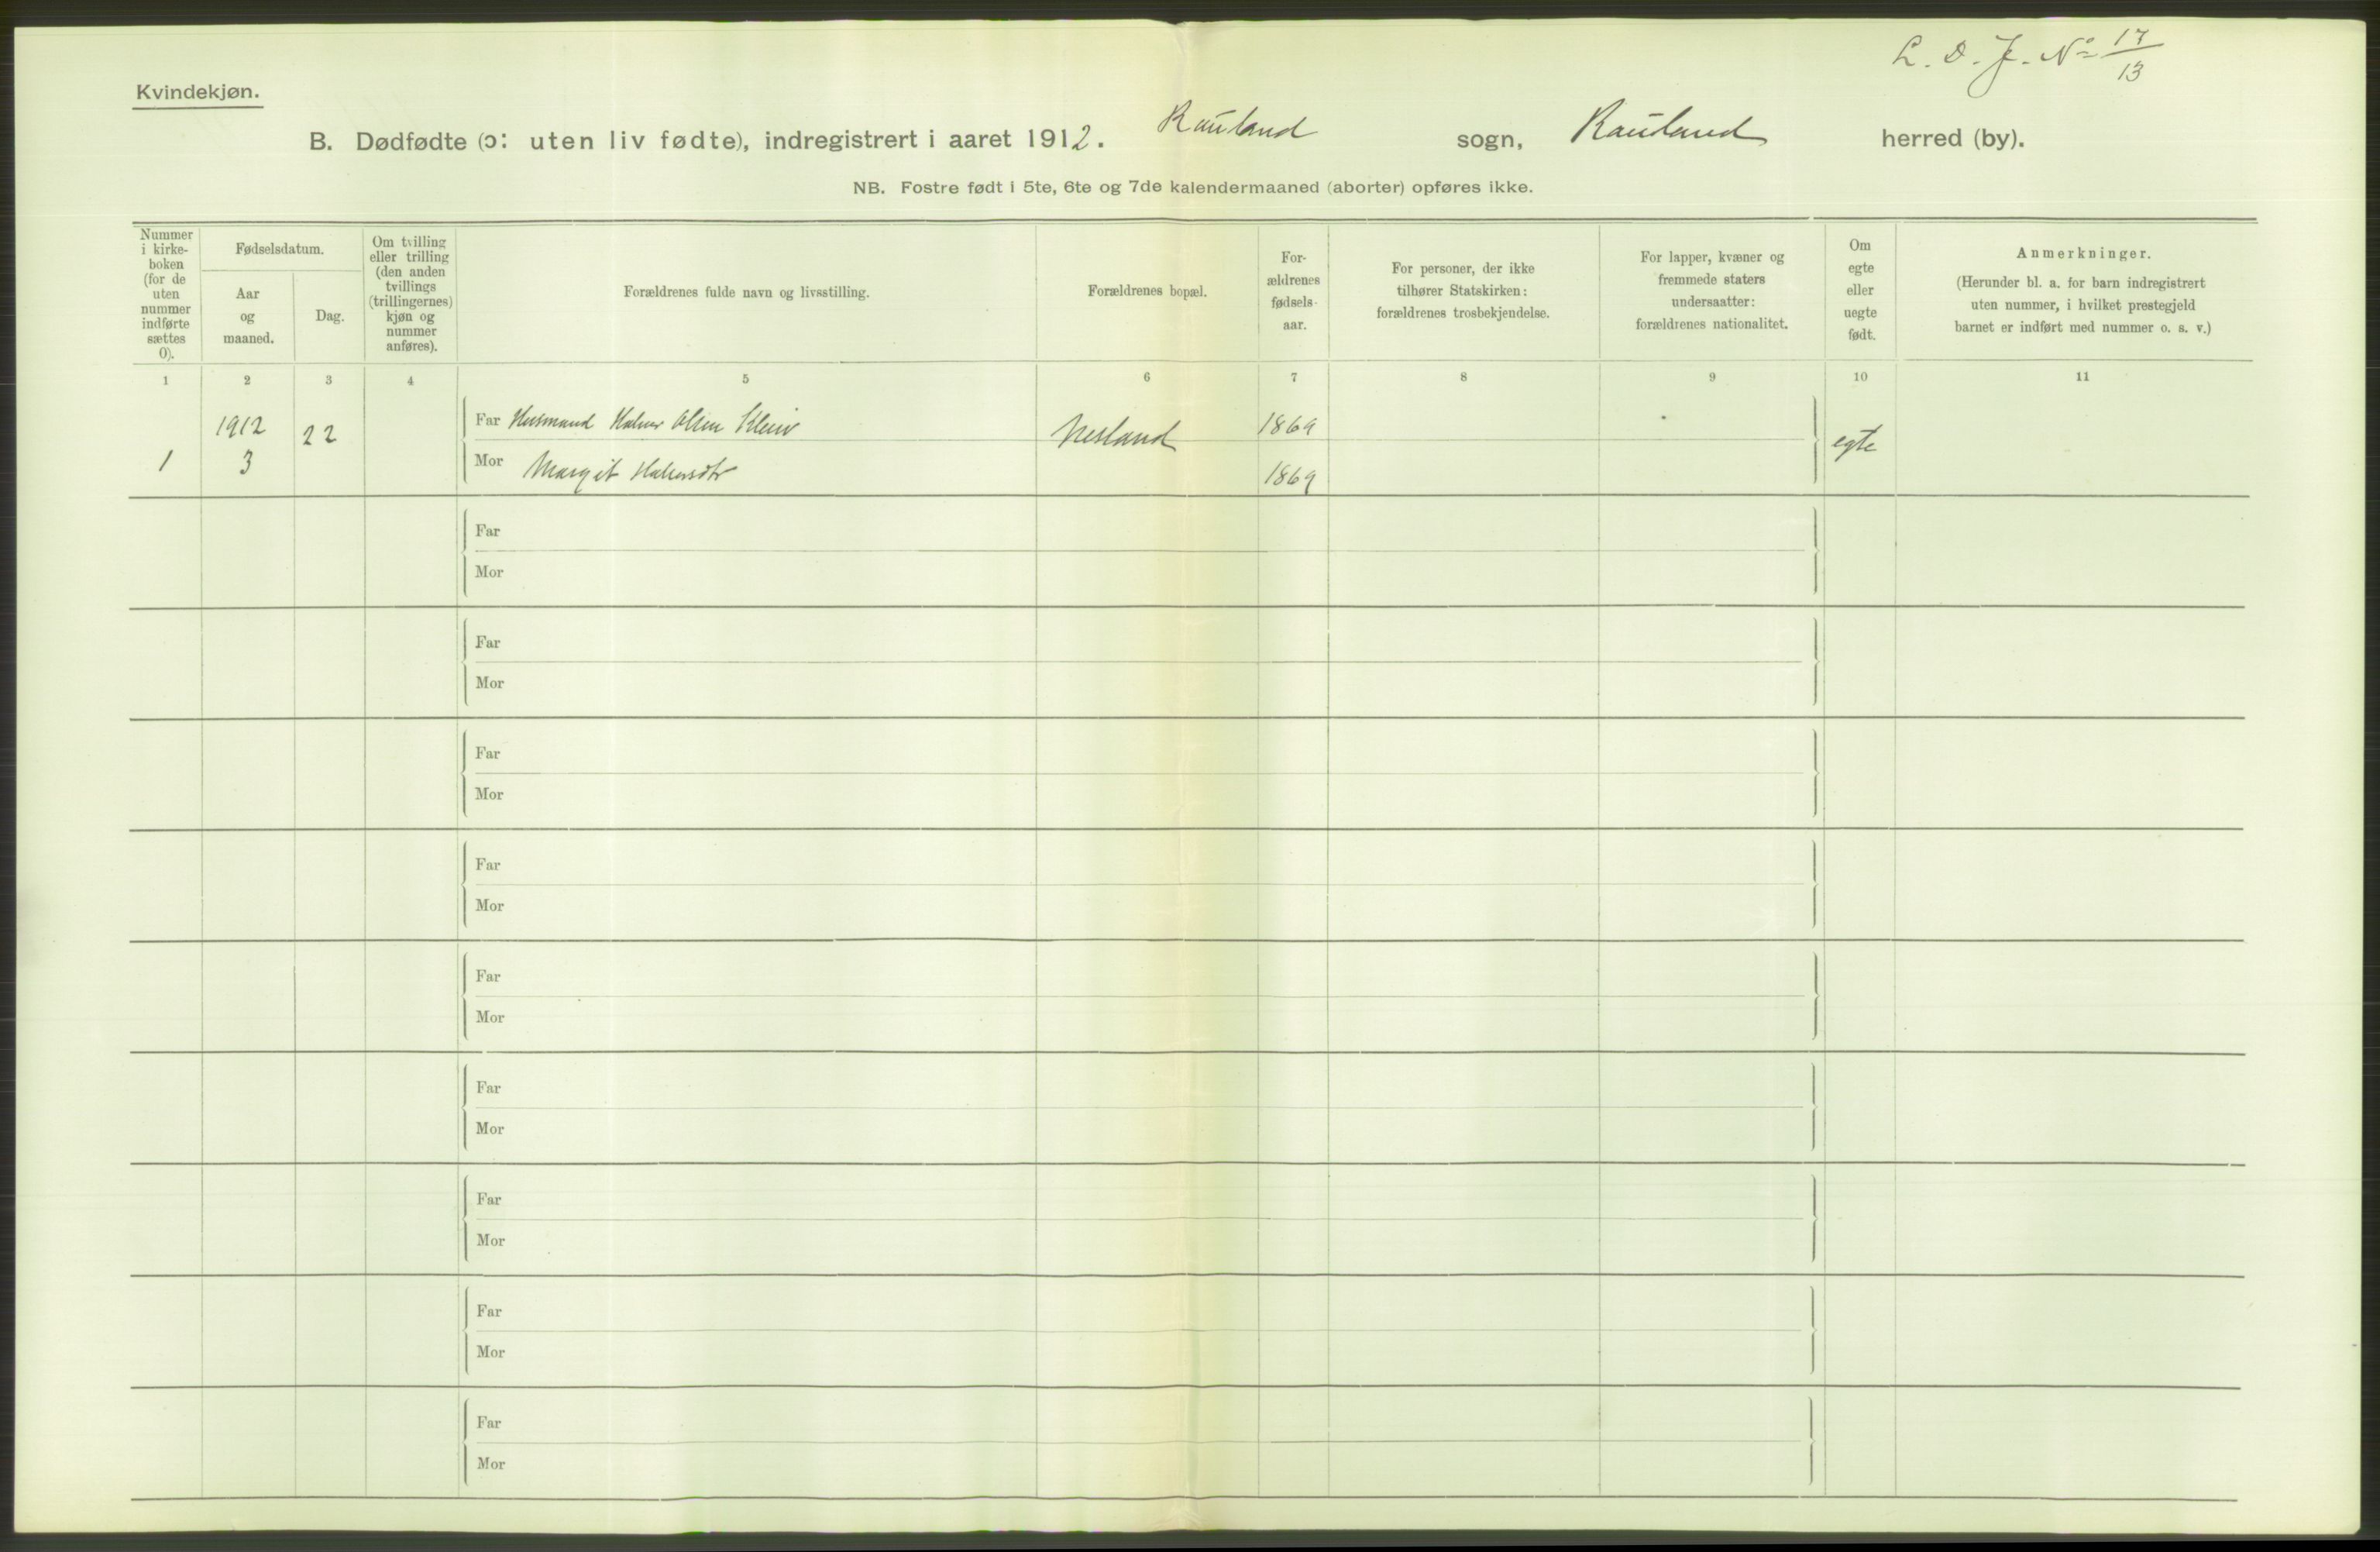 L. D. J. No 17/13
Kvindekjøn.
B. Dødfødte (ɔ: uten liv fødte), indregistrert i aaret 1912. Rauland sogn, Rauland herred (by).
NB. Fostre født i 5te, 6te og 7de kalendermaaned (aborter) opføres ikke.
Nummer
i kirke-
boken
(for de
uten
nummer
indførte
sættes
0).
Fødselsdatum.
Aar
og
maaned.
Dag.
Om tvilling
eller trilling
(den anden
tvillings
(trillingernes)
kjøn og
nummer
anføres).
Forældrenes fulde navn og livsstilling.
Forældrenes bopæl.
For-
ældrenes
fødsels-
aar.
For personer, der ikke
tilhører Statskirken:
forældrenes trosbekjendelse.
For lapper, kvæner og
fremmede staters
undersaatter:
forældrenes nationalitet.
Om
egte
eller
uegte
født.
Anmerkninger.
(Herunder bl. a. for barn indregistrert
uten nummer, i hvilket prestegjeld
barnet er indført med nummer o. s. v.)
1 2 3 4 5 6 7 8 9 10 11
1912 22 Far Husmand Halvor Olsen Kleiv Nesland 1869 egte
1 3 Mor Margit Halvorsdtr 1869
Far
Mor
Far
Mor
Far
Mor
Far
Mor
Far
Mor
Far
Mor
Far
Mor
Far
Mor
Far
Mor